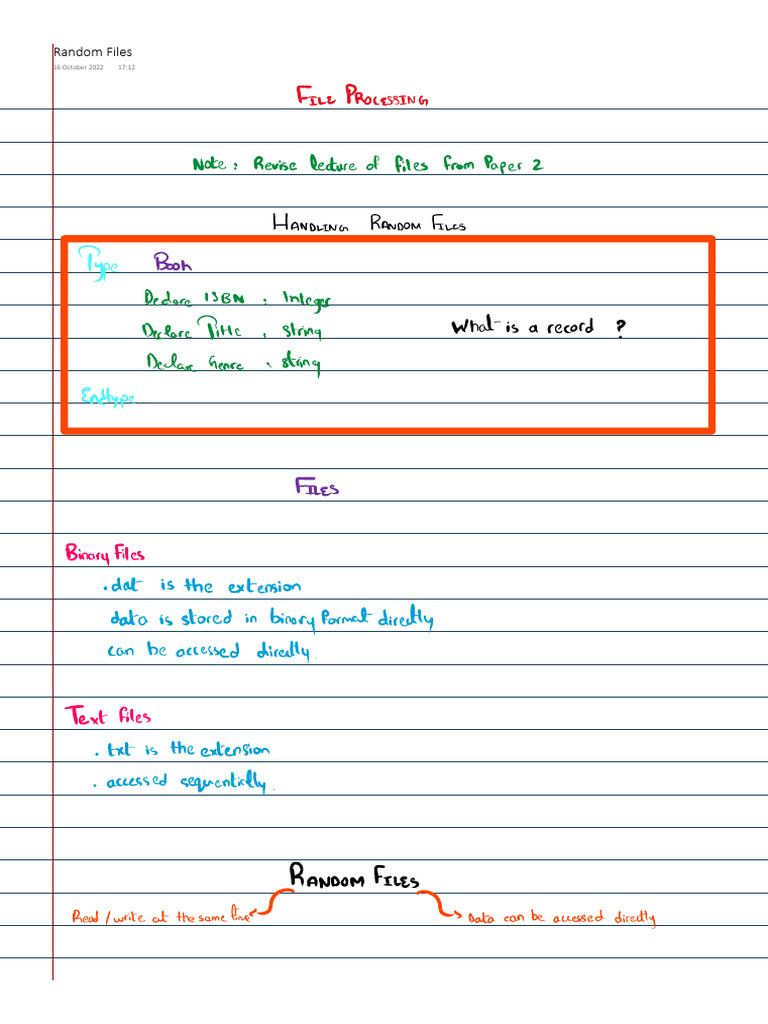 Random Files
16 October 2022 17:12
FILE PROCESSING
Note: Revise lecture of files from Paper 2
HANDLING RANDOM FILES
Type Book
Declare ISBN : Integer
Declare Title : string
What is a record ?
Declare Genre : string
Endtype
FILES
Binary Files
.dat is the extension
data is stored in binary format directly
can be accessed directly.
Text files
.txt is the extension
. accessed sequentially.
RANDOM FILES
Read / write at the same time
Data can be accessed directly